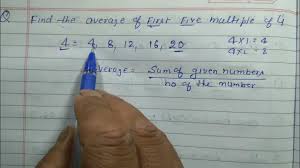 Q Find the average of First Five multiple of 4
4 = 4, 8, 12, 16, 20
4 x 1 = 4
4 x 2 = 8
Average = Sum of given numbers
no of the number